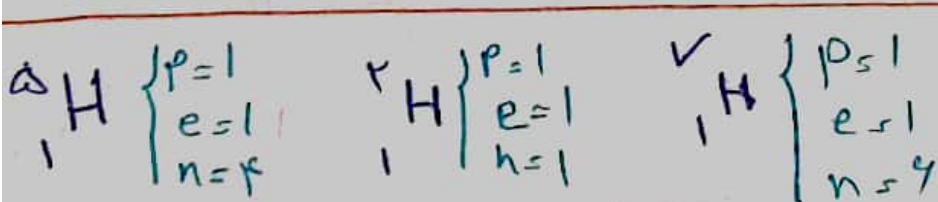 ۵
۱ H { p=1
e=1
n=۴
۲
۱ H { p=1
e=1
n=1
۷
۱ H { p=1
e=1
n=۶